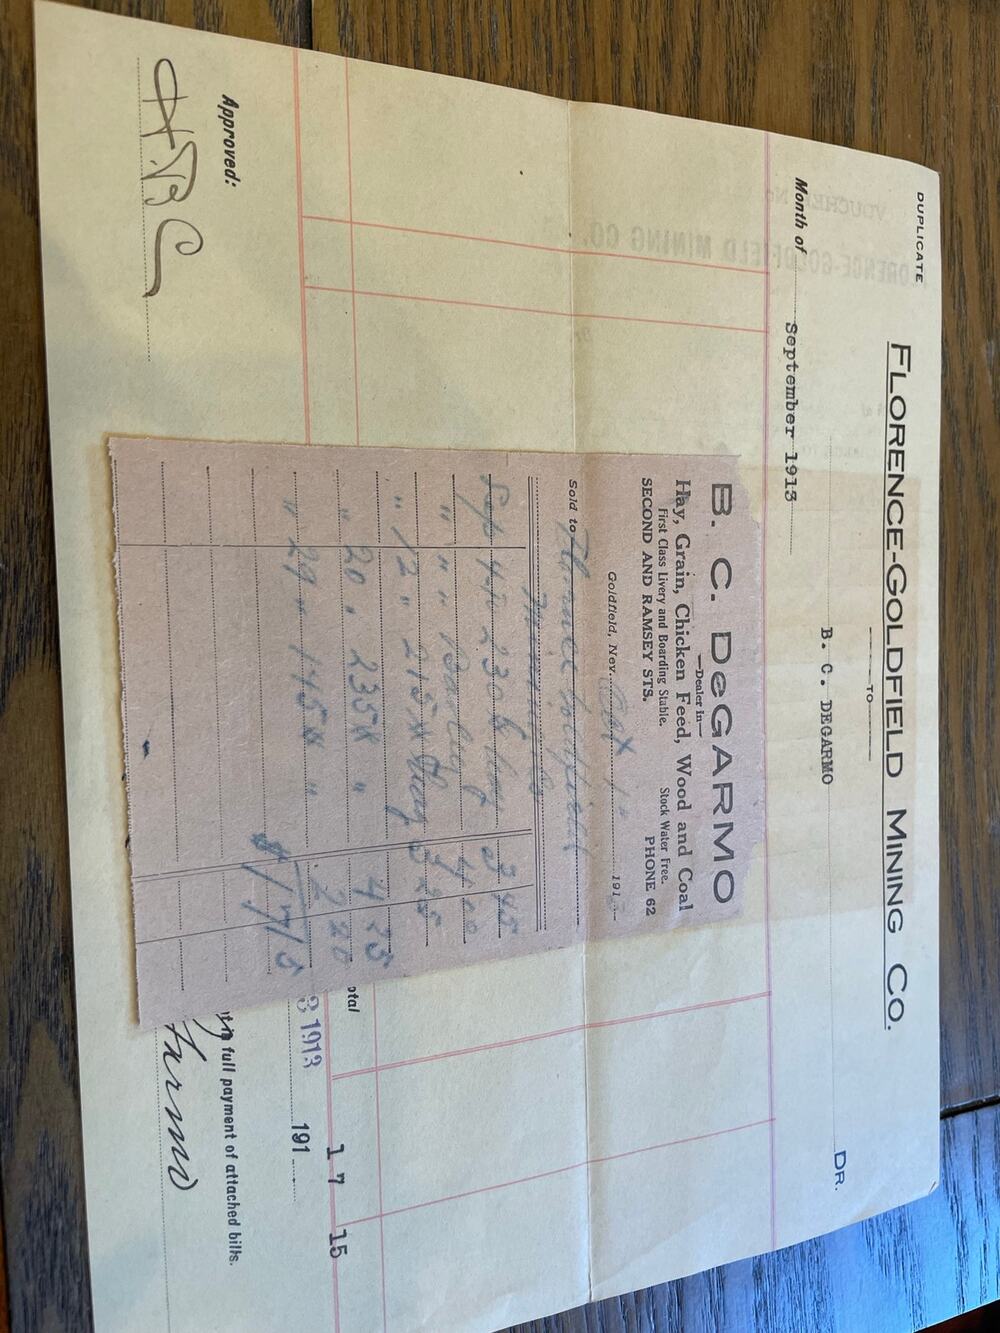 DUPLICATE
FLORENCE-GOLDFIELD MINING CO.
TO
B. C. DEGARMO DR.
Month of September 1913
B. C. DeGARMO
—Dealer in—
Hay, Grain, Chicken Feed, Wood and Coal
First Class Livery and Boarding Stable. Stock Water Free.
SECOND AND RAMSEY STS. PHONE 62
Goldfield, Nev. Oct 1" 1913
Sold to Florence Goldfield
Sep 4 230 hay 3 45
" " " Barley 4 00
" 12 " 215 # Hay 3 25
" 20 " 235# " 4 25
" 29 " 145# " 2 20
$ 17 15
otal 17 15
3 1913 191
in full payment of attached bills.
Approved:
HBC